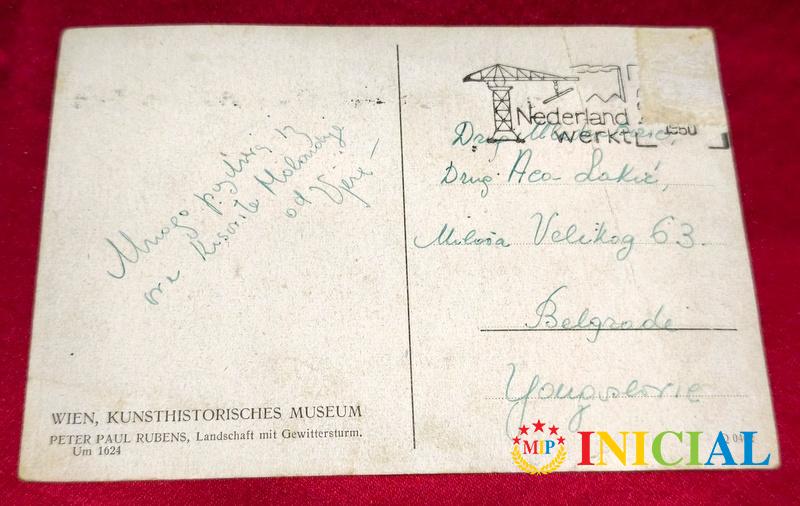 Mnogo pozdrava iz
ove kišovite Holandije
od Vere
WIEN, KUNSTHISTORISCHES MUSEUM
PETER PAUL RUBENS, Landschaft mit Gewittersturm.
Um 1624
Nederland
werkt
1950
Drug
Drug Aca Lakić,
Miloša Velikog 63.
Belgrade
Yougoslavie
MIP INICIAL